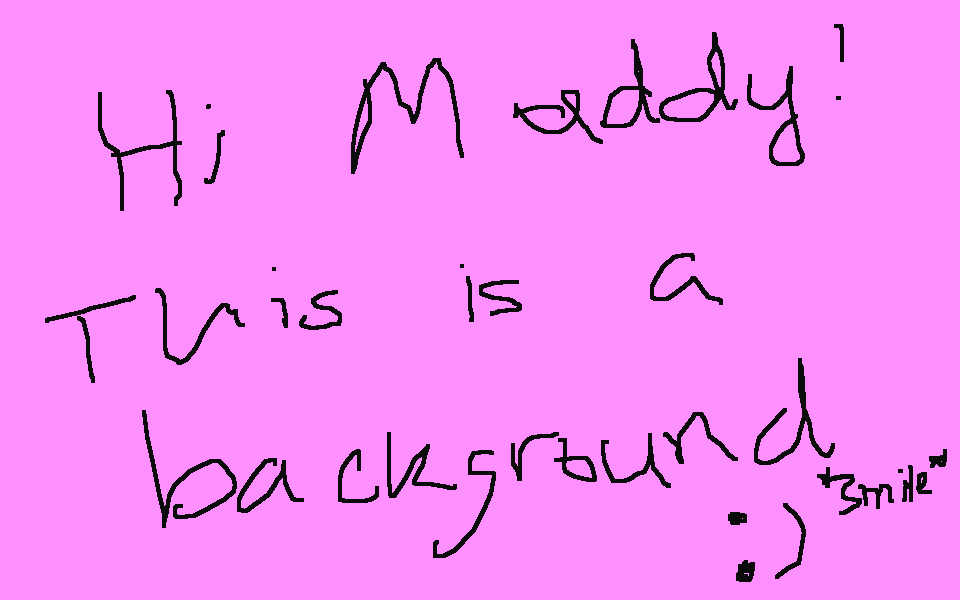 Hi Maddy!
This is a
background
*smile*
:)